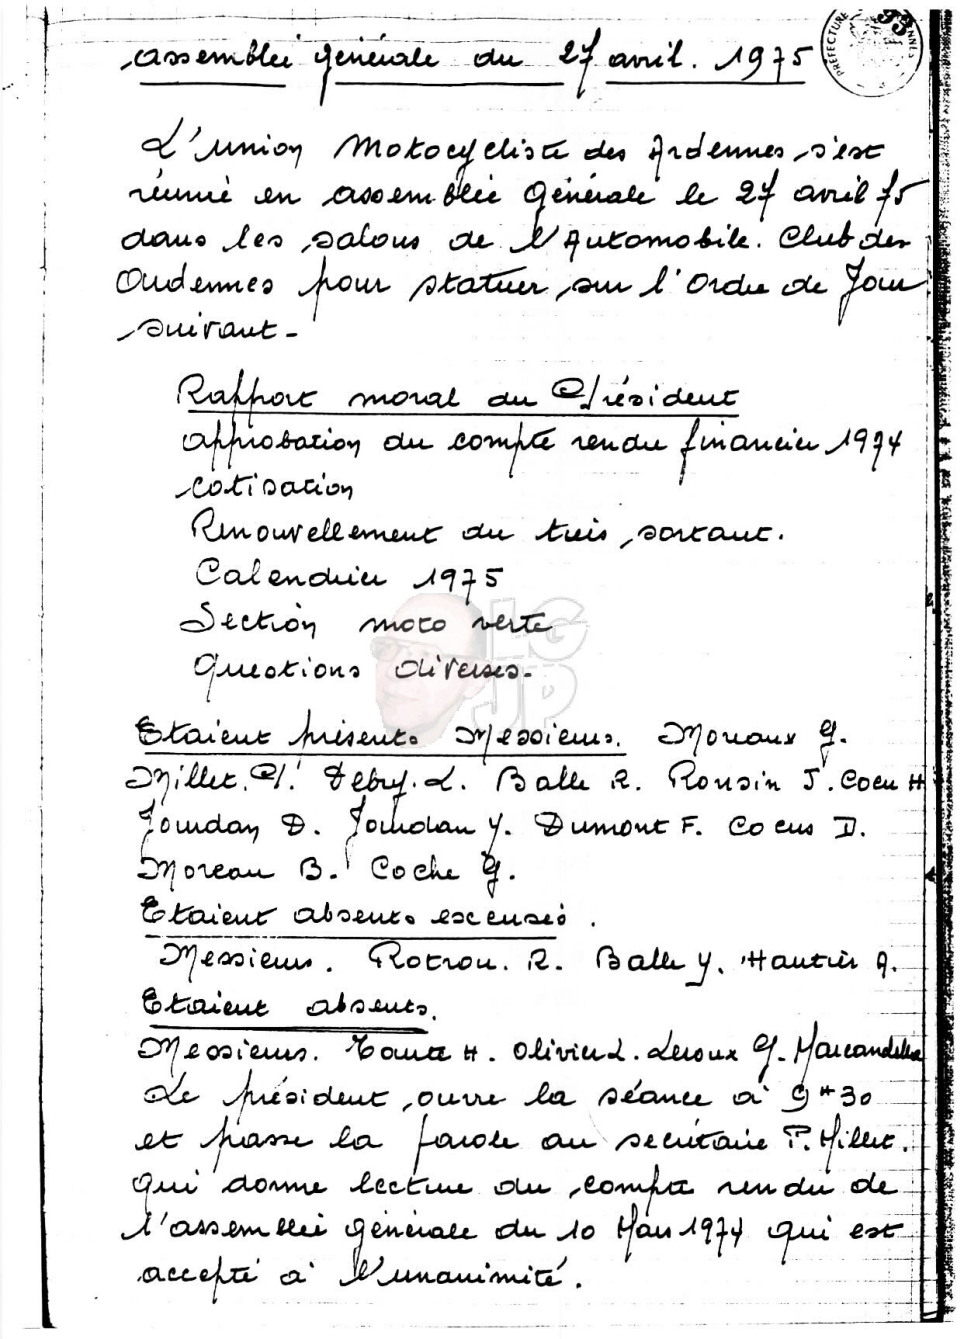 assemblée générale du 27 avril. 1975
PREFECTURE
33
L'union Motocycliste des Ardennes, s'est
réunie en assemblée Générale le 27 avril 75
dans les salons de l'Automobile. Club des
Ardennes pour statuer sur l'Ordre de Jour
suivant -
Rapport moral du Président
approbation du compte rendu financier 1974
cotisation
Renouvellement du tiers sortant.
Calendrier 1975
Section moto verte
Questions diverses -
LG
JP
Etaient présents Messieurs. Moreaux G.
Millet. P. Debry. L. Balle R. Ronsin J. Coeu H
Jourdan D. Jourdan Y. Dumont F. Cocus D.
Moreau B. Coche G.
Etaient absents excusés.
Messieurs. Rotrou. R. Balle Y. Hautier A.
Etaient absents.
Messieurs. H. Olivier L. Leroux G.
Le président ouvre la séance à 9H30
et passe la parole au secrétaire P. Millet.
qui donne lecture du compte rendu de
l'assemblée générale du 10 Mars 1974 qui est
accepté à l'unanimité.